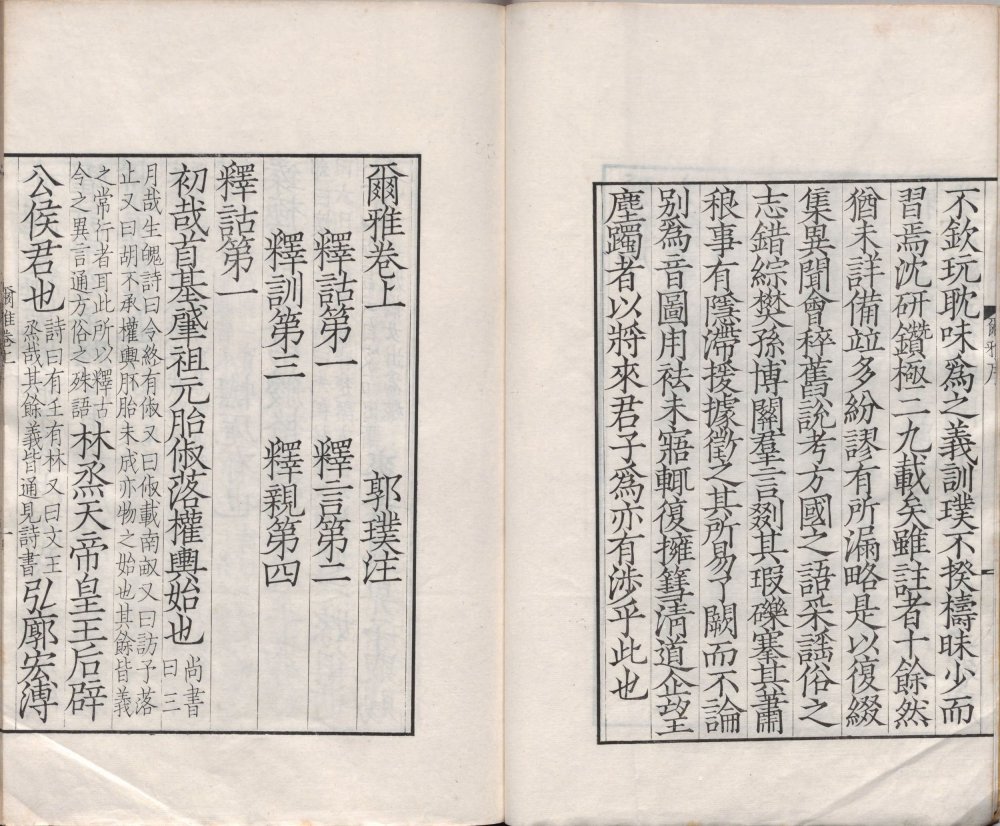 不欽玩耽味爲之義訓璞不揆檮昧少而
習焉沈研鑽極二九載矣雖註者十餘然
猶未詳備竝多紛謬有所漏略是以復綴
集異聞會稡舊說考方國之語采謠俗之
志錯綜樊孫博關羣言剟其瑕礫搴其蕭
稂事有隱滯援據徵之其所易了闕而不論
別爲音圖用袪未寤輒復擁篲清道企望
塵躅者以將來君子爲亦有涉乎此也
爾雅序
爾雅卷上 郭璞注
釋詁第一 釋言第二
釋訓第三 釋親第四
釋詁第一
初哉首基肇祖元胎俶落權輿始也 尚書曰三
月哉生魄詩曰令終有俶又曰俶載南畝又曰訪予落
止又曰胡不承權輿胚胎未成亦物之始也其餘皆義
之常行者耳此所以釋古
今之異言通方俗之殊語 林烝天帝皇王后辟
公侯君也 詩曰有壬有林又曰文王
烝哉其餘義皆通見詩書 弘廓宏溥
爾雅卷上
一